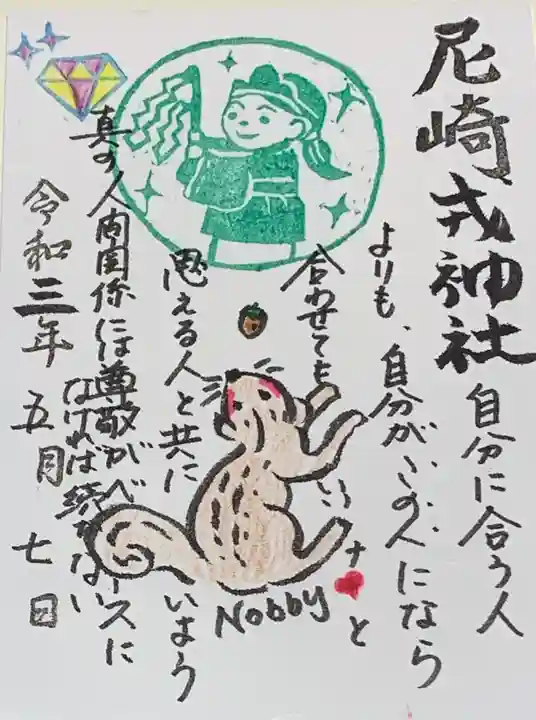 尼崎戎神社
自分に合う人
よりも、自分がこの人になら
合わせてもいいナ♥と
思える人と共にいよう
真の人間関係には尊敬がベースに
なければ続かない
令和三年五月七日
Nobby